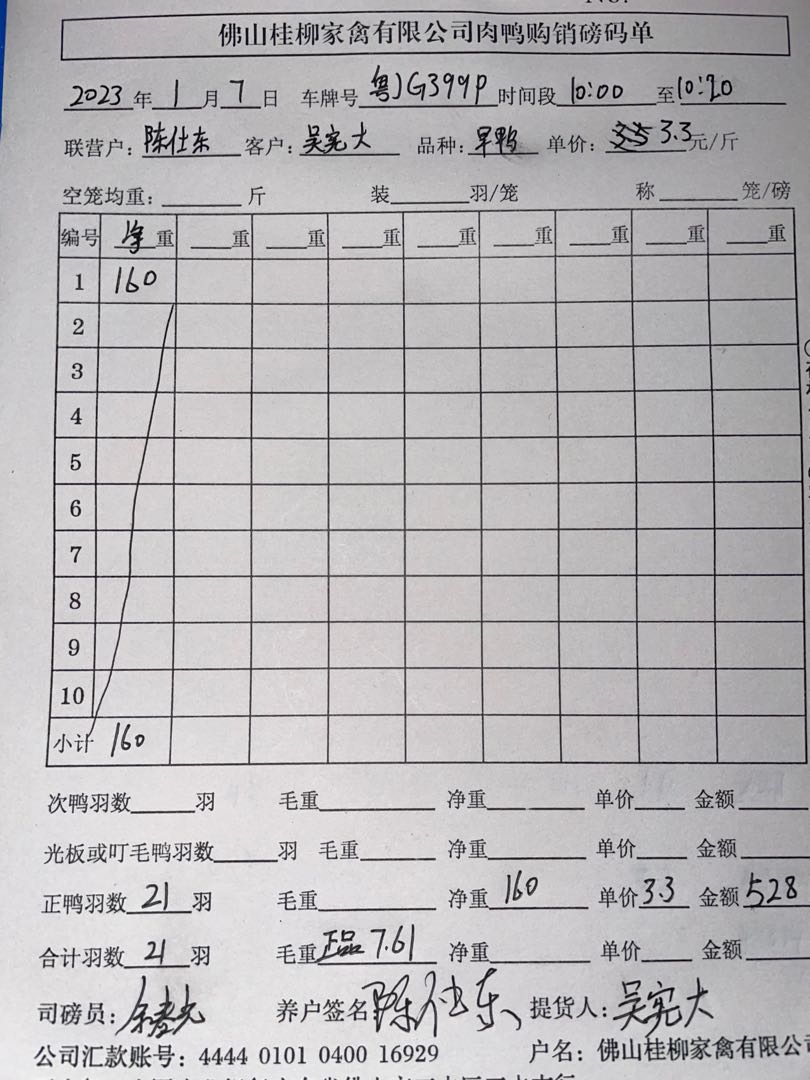 佛山桂柳家禽有限公司肉鸭购销磅码单
2023年1月7日 车牌号 粤JG399P 时间段 10:00 至 10:20
联营户：陈仕东 客户：吴宪大 品种：旱鸭 单价：3.3元/斤
空笼均重：斤 装 羽/笼 称 笼/磅
编号 净重 重 重 重 重 重 重 重 重
1 160
2
3
4
5
6
7
8
9
10
小计 160
次鸭羽数 羽 毛重 净重 单价 金额
光板或叮毛鸭羽数 羽 毛重 净重 单价 金额
正鸭羽数 21 羽 毛重 净重 160 单价 3.3 金额 528
合计羽数 21 羽 毛重 正品 7.61 净重 单价 金额
司磅员： 养户签名 陈仕东 提货人：吴宪大
公司汇款账号：4444 0101 0400 16929 户名：佛山桂柳家禽有限公司